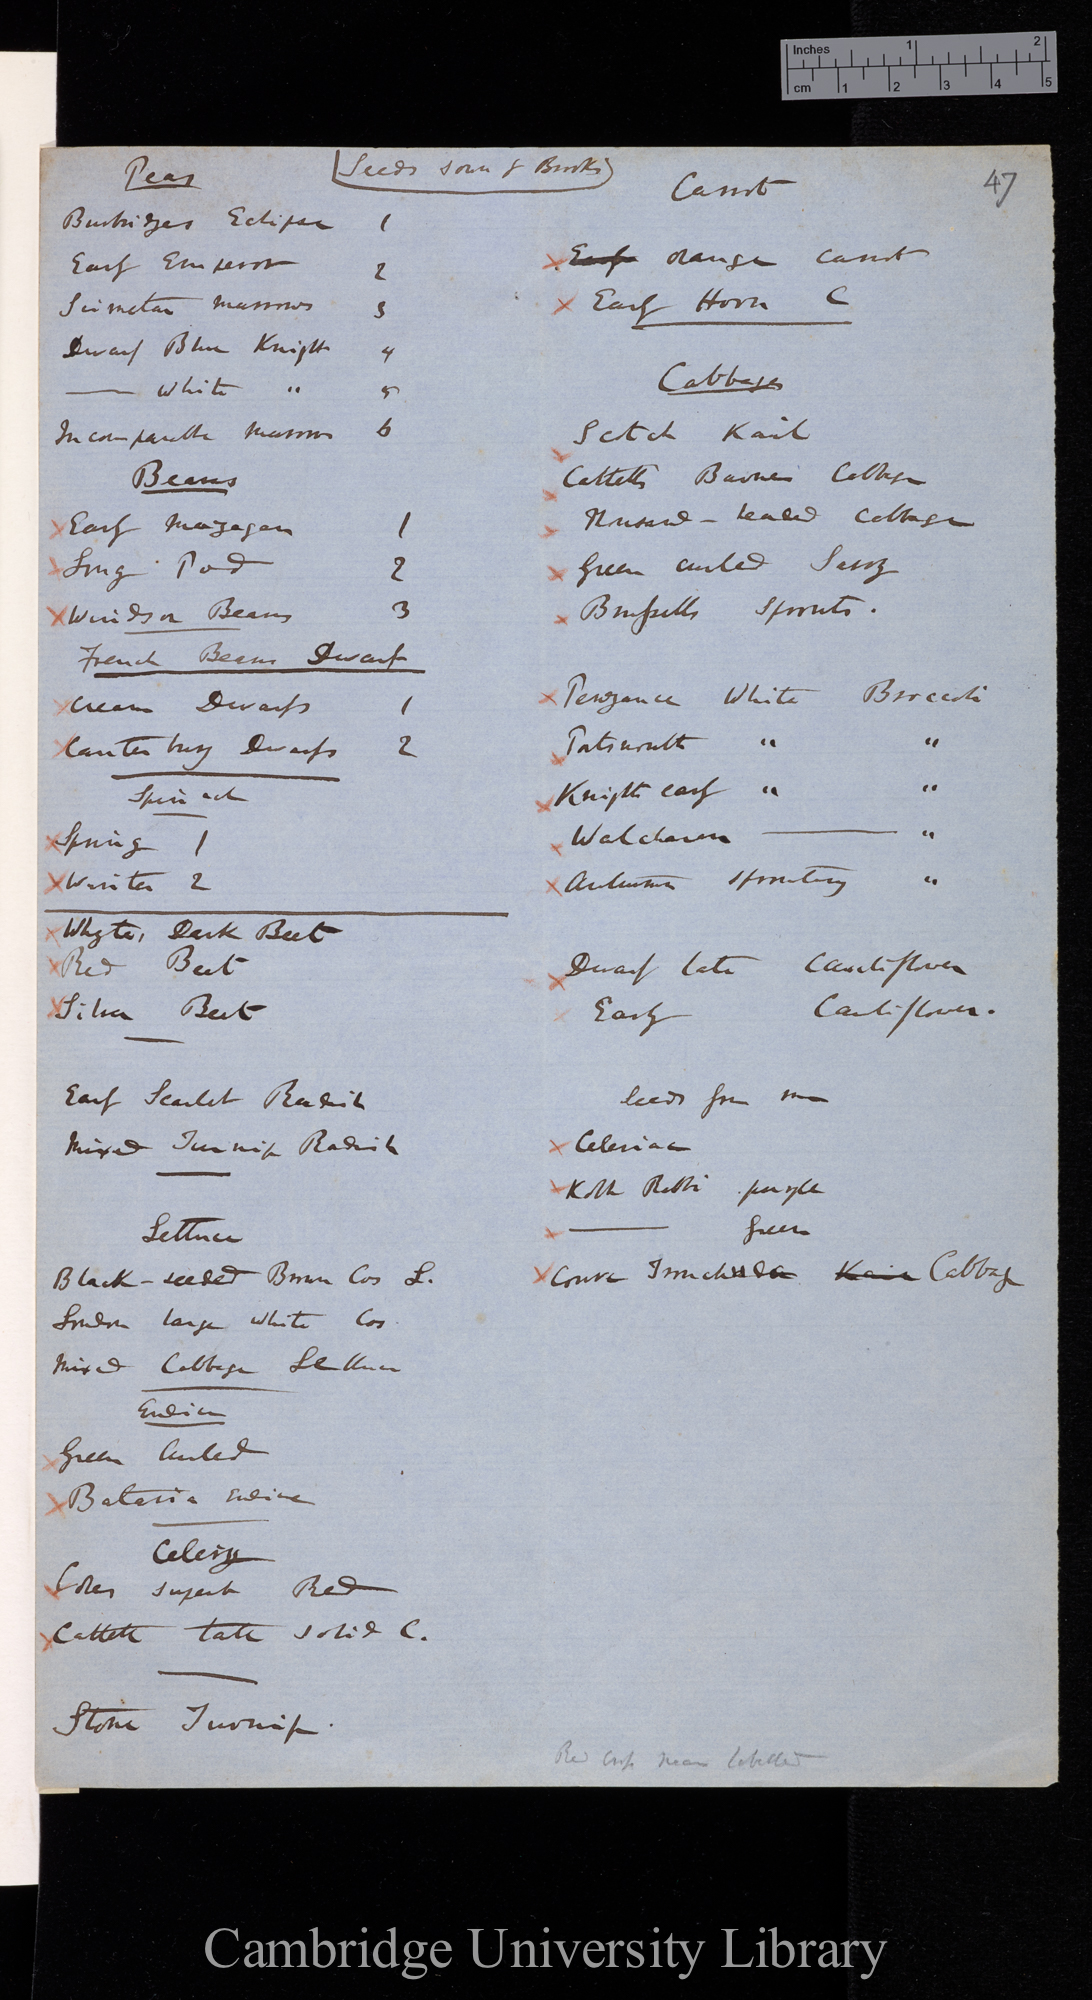 Inches 1 2
cm 1 2 3 4 5
47
Seeds sown by Brooks
Peas
Burbidges Eclipse 1
Early Emperor 2
Scimetar Marrows 3
Dwarf Blue Knights 4
—— White " 5
Incomparable Marrow 6
Beans
Early Mazagan 1
Long Pod 2
Windsor Beans 3
French Beans Dwarf
Cream Dwarfs 1
Canterbury Dwarfs 2
Spinach
Spring 1
Winter 2
Whytes Dark Beet
Red Beet
Silver Beet
Early Scarlet Radish
Mixed Turnip Radish
Lettuce
Black-seeded Brown Cos L.
London large white Cos
Mixed Cabbage Lettuce
Endive
Green Curled
Batavia endive
Celery
Coles superb Red
Cattells late solid C.
Stone Turnip.
Carrot
Early orange carrot
Early Horn C
Cabbages
Scotch Kail
Cattells Barnes Cabbage
Thousand-headed cabbage
Green curled Savoy
Brussells Sprouts.
Penzance White Broccoli
Portsmouth " "
Knights early " "
Walcheren —— "
Autumn sprouting "
Dwarf late Cauliflower
Early Cauliflower.
Seeds from me
Celeriac
Kohl Rabbi purple
—— Green
Couve Tronchuda Kail Cabbage
Red cross means labelled
Cambridge University Library